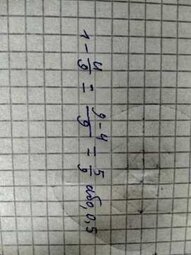 1 - 4/9 = 9-4/9 = 5/9 або 0,5